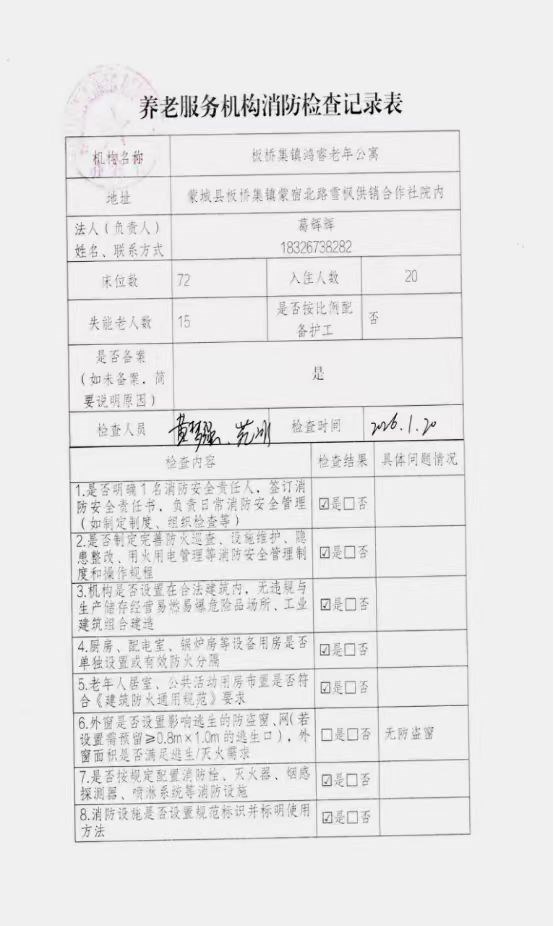 养老服务机构消防检查记录表
机构名称 板桥集镇鸿睿老年公寓
地址 蒙城县板桥集镇蒙宿北路雪枫供销合作社院内
法人(负责人)
姓名、联系方式
葛辉辉
18326738282
床位数 72 入住人数 20
失能老人数 15
是否按比例配
备护工
否
是否备案
(如未备案,简
要说明原因)
是
检查人员 检查时间 2026.1.20
检查内容 检查结果 具体问题情况
1.是否明确1名消防安全责任人,签订消
防安全责任书,负责日常消防安全管理
(如制定制度、组织检查等)
☑是□否
2.是否制定完善防火巡查、设施维护、隐
患整改、用火用电管理等消防安全管理制
度和操作规程
☑是□否
3.机构是否设置在合法建筑内,无违规与
生产储存经营易燃易爆危险品场所、工业
建筑组合建造
☑是□否
4.厨房、配电室、锅炉房等设备用房是否
单独设置或有效防火分隔
☑是□否
5.老年人居室、公共活动用房布置是否符
合《建筑防火通用规范》要求
☑是□否
6.外窗是否设置影响逃生的防盗窗、网(若
设置需预留≥0.8m×1.0m的逃生口),外
窗面积是否满足逃生/灭火需求
□是□否 无防盗窗
7.是否按规定配置消防栓、灭火器、烟感
探测器、喷淋系统等消防设施
☑是□否
8.消防设施是否设置规范标识并标明使用
方法
☑是□否